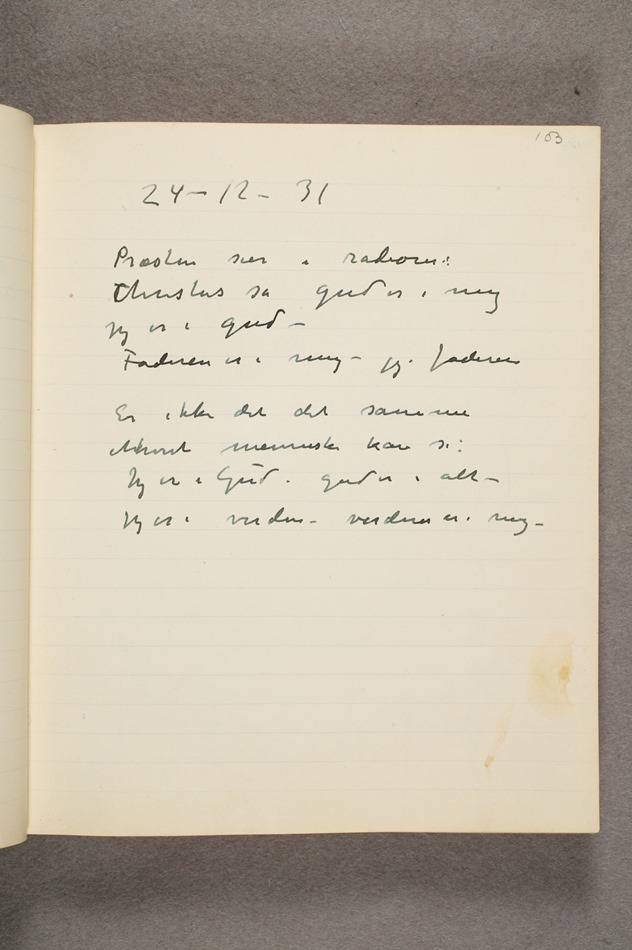 103
24–12– 31
Præsten sier i radioen:
Christus sa gud er i meg
jeg er i gud –
Faderen er i meg – jeg i faderen
Er ikke det det samme
ethvert menneske kan si:
Jeg er i Gud. gud er i alt –
Jeg er i verden – verden er i meg –